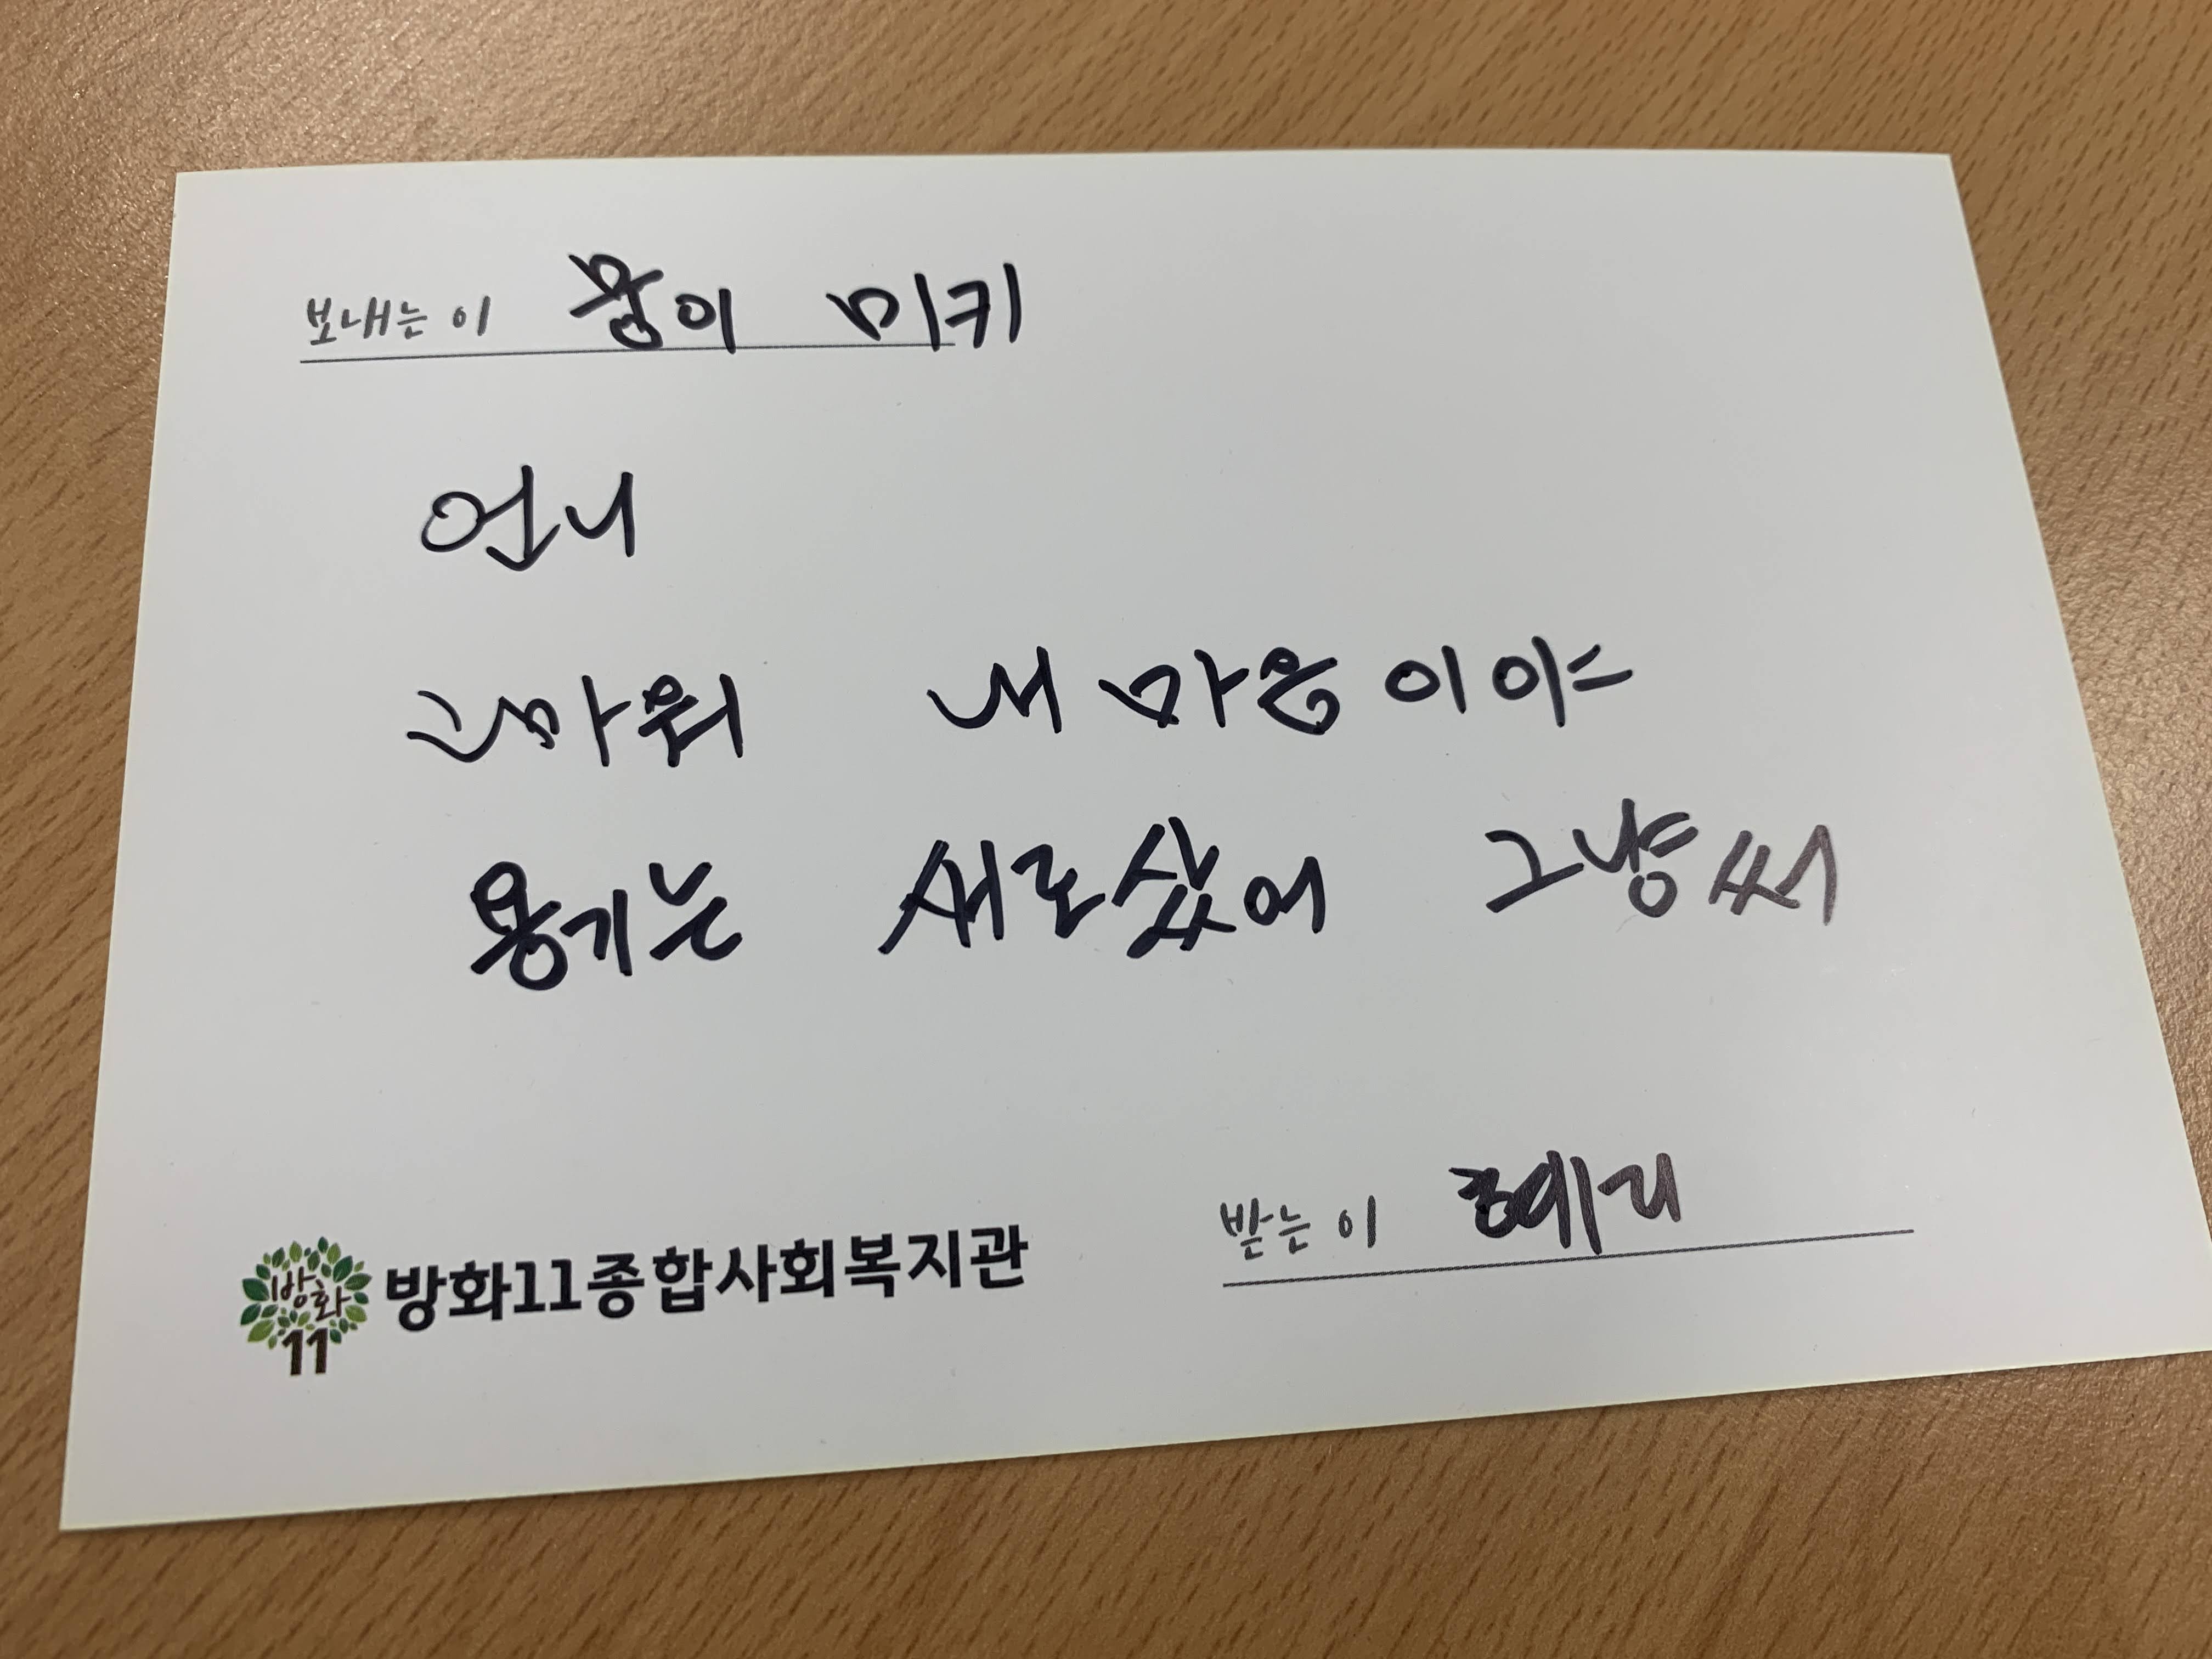 보내는 이 뭉이 미키
언니
고마워 내 마음이야
용기는 새로샀어 그냥써
받는 이 혜리
방화
11
방화11종합사회복지관